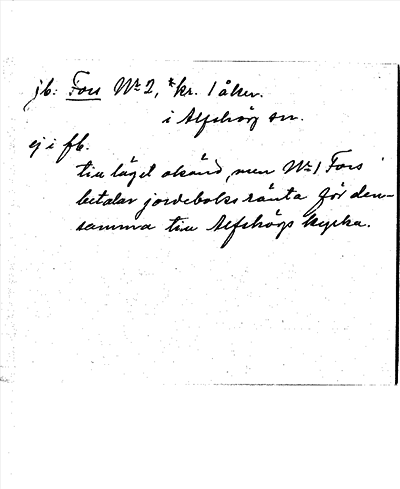 jb. Fors No 2, *kr. 1 åker.
i Alfshög sn.
ej i fb.
till läget okänd, men No 1 Fors
betalar jordeboksränta för den-
samma till Alfshögs kyrka.